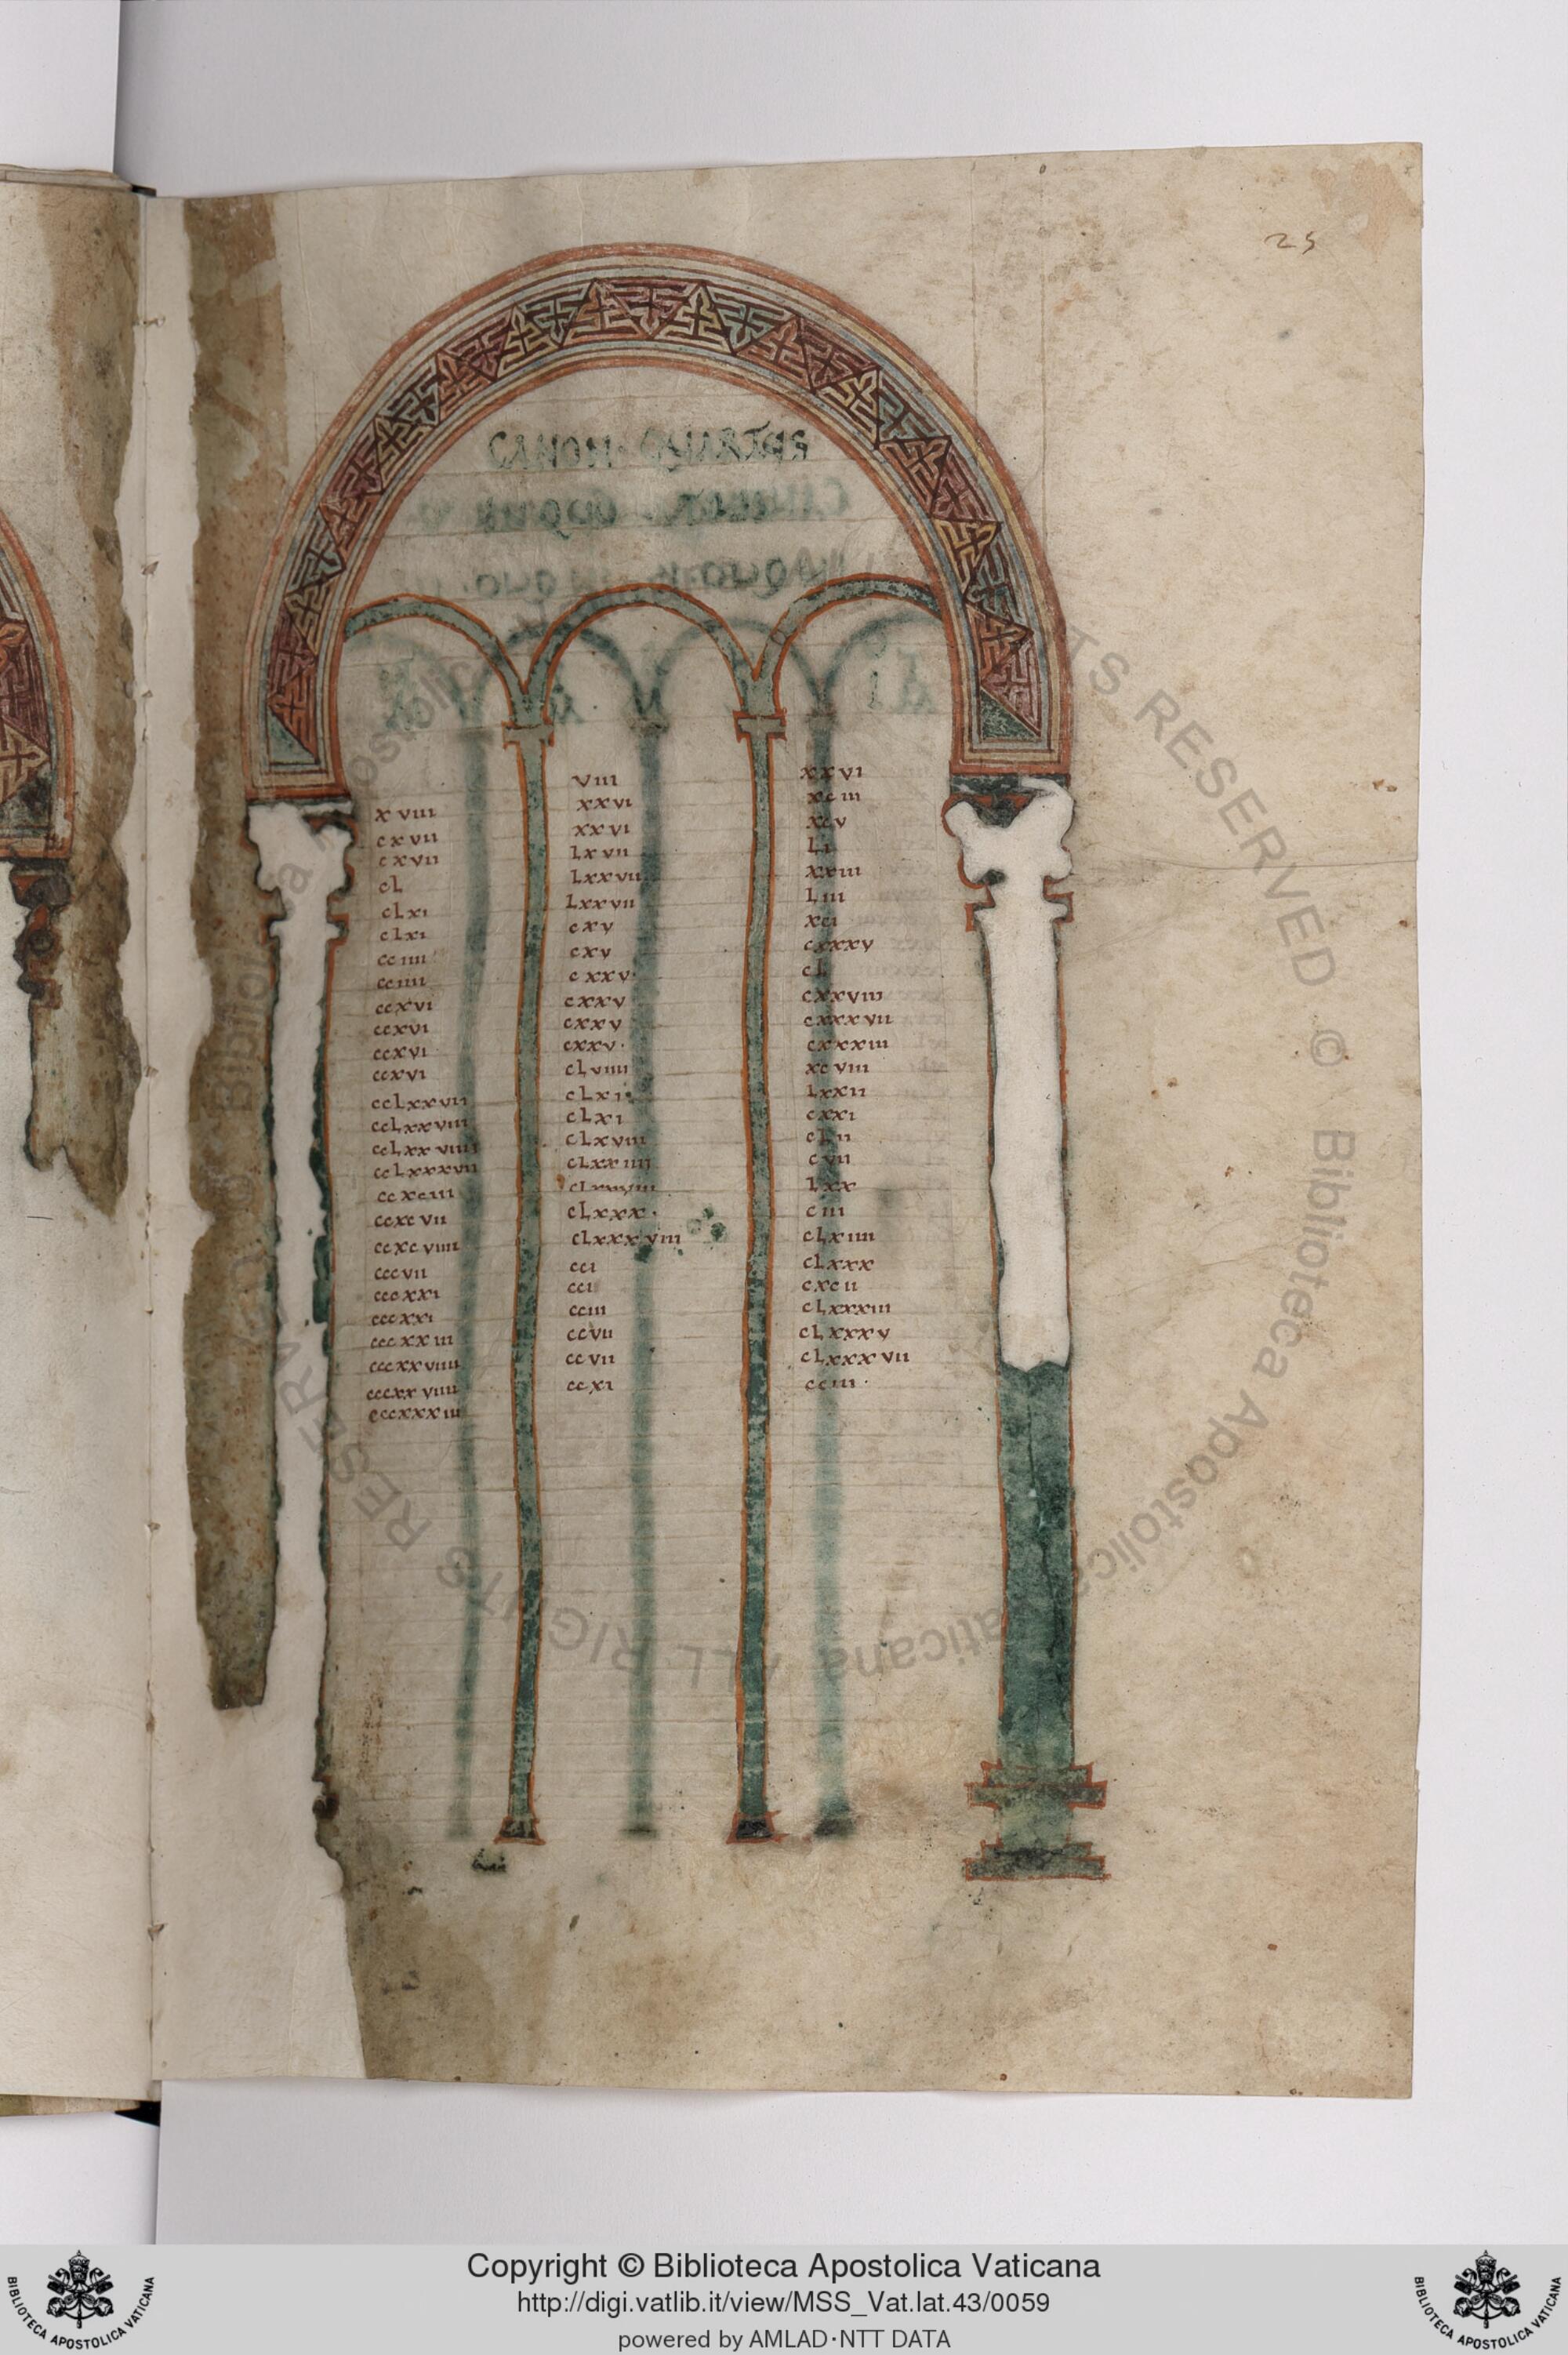 25
CANON QUARTUS
xviii
cxvii
cxvii
cl
clxi
clxi
cciiii
cciiii
ccxvi
ccxvi
ccxvi
ccxvi
cclxxvii
cclxxviiii
cclxxxvii
ccxciii
ccxcvii
ccxcviiii
cccvii
cccxxi
cccxxi
cccxxiii
cccxxviiii
cccxxviiii
cccxxxiii
viii
xxvi
xxvi
lxvii
lxxvii
lxxvii
cxv
cxv
cxxv
cxxv
cxxv
cxxv
clviiii
clxi
clxi
clxviii
clxxiiii
clxxx
clxxxviii
cci
cci
cciii
ccvii
ccvii
ccxi
xxvi
xciii
xcv
li
xxiii
liii
xci
cxxxv
cl
cxxviii
cxxxvii
cxxxiii
xcviii
lxxii
cxxi
clii
cvii
lxx
ciii
clxiiii
clxxx
cxcii
clxxxiii
clxxxv
clxxxvii
cciii
ALL RIGHTS RESERVED © Biblioteca Apostolica Vaticana
BIBLIOTECA APOSTOLICA VATICANA
Copyright © Biblioteca Apostolica Vaticana
http://digi.vatlib.it/view/MSS_Vat.lat.43/0059
powered by AMLAD·NTT DATA
BIBLIOTECA APOSTOLICA VATICANA